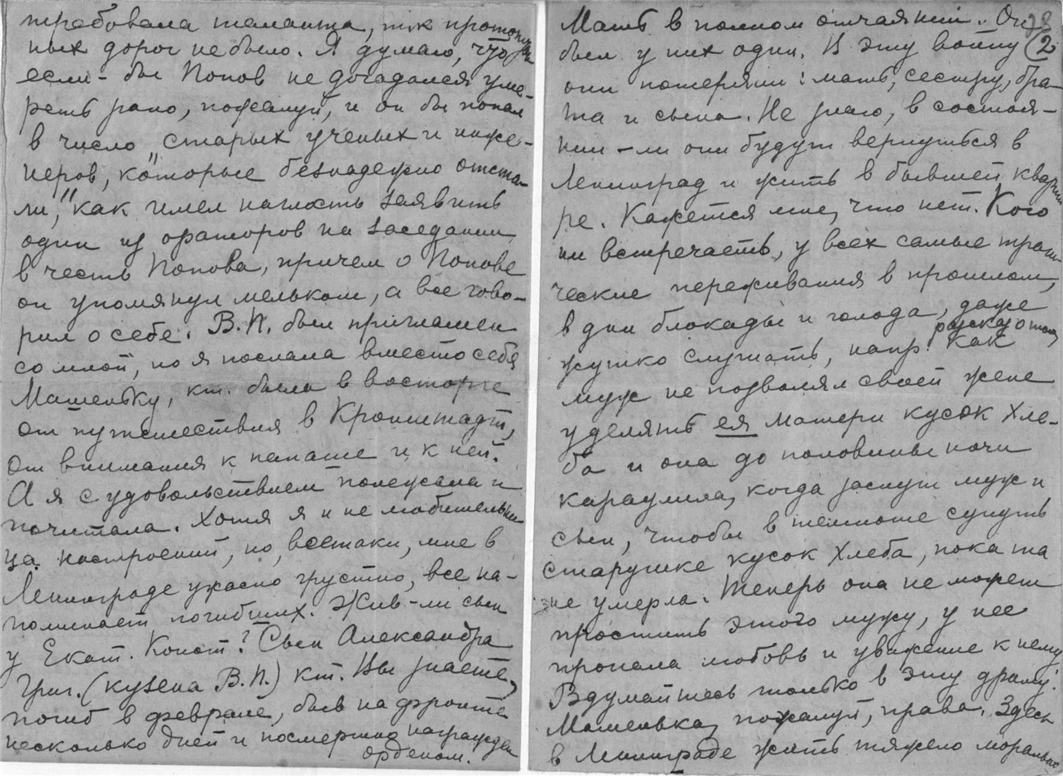 требовала таланта, т.к проторен-
ных дорог не было. Я думаю, что
если-бы Попов не догадался уме-
реть рано, пожалуй, и он бы попал
в число „старых ученых и инже-
неров, которые безнадежно отста-
ли", как имел наглость заявить
один из ораторов на заседании
в честь Попова, причем о Попове
он упомянул мельком, а все гово-
рил о себе. В.П. был приглашен
со мной, но я послала вместо себя
Машеньку, кт. была в восторге
от путешествия в Кронштадт,
от внимания к папаше и к ней.
А я с удовольствием полежала и
почитала. Хотя я и не любительни-
ца настроений, но, всетаки, мне в
Ленинграде ужасно грустно, все на-
поминает погибших. Жив-ли сын
у Екат. Конст.? Сын Александра
Григ. (кузена В.П.) кт. Вы знаете,
погиб в феврале, быв на фронте
несколько дней и посмертно награжден
орденом.
2
Мать в полном отчаянии. Он
был у них один. В эту войну
они потеряли: мать, сестру, бра-
та и сына. Не знаю, в состоя-
нии-ли они будут вернуться в
Ленинград и жить в бывшей кварти-
ре. Кажется мне, что нет. Кого
ни встречаешь, у всех самые траги-
ческие переживания в прошлом,
в дни блокады и голода, даже
жутко слушать, напр. рассказ о том, как
муж не позволял своей жене
уделять ея матери кусок хле-
ба и она до половины ночи
караулила, когда заснут муж и
сын, чтобы в темноте сунуть
старушке кусок хлеба, пока та
не умерла. Теперь она не может
простить этого мужу, у нее
пропала любовь и уважение к нему.
Вдумайтесь только в эту драму.
Машенька, пожалуй, права. Здесь
в Ленинграде жить тяжело морально